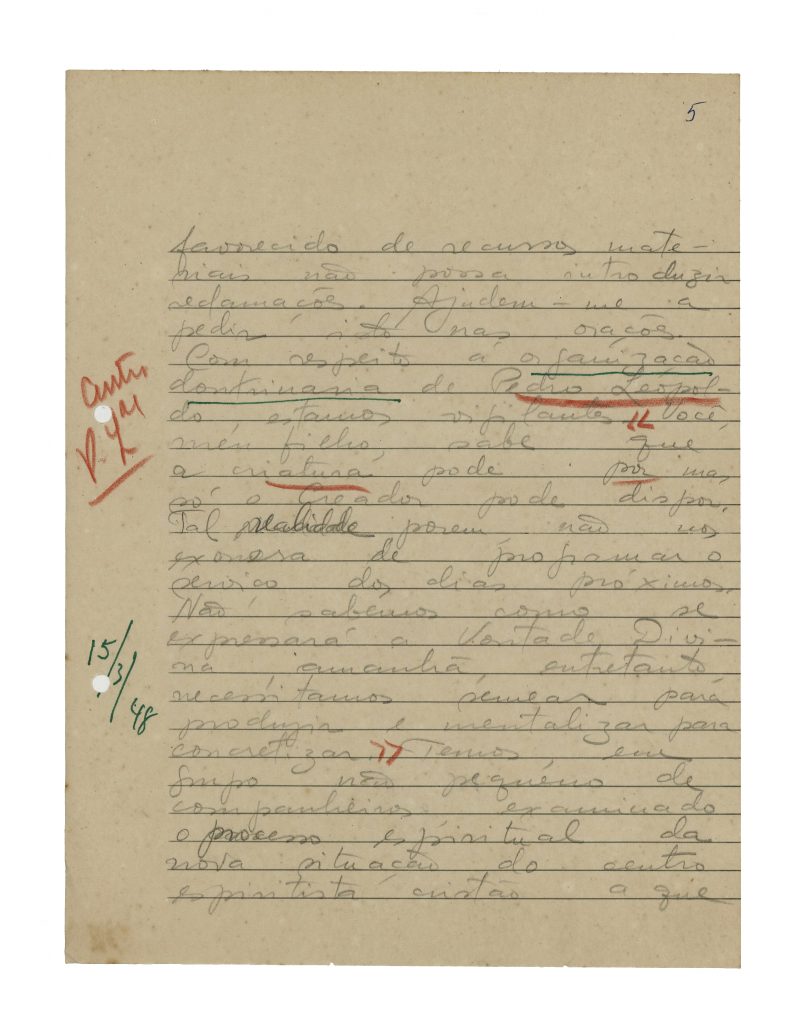 5
favorecido de recursos mate-
riais não possa introduzir
reclamações. Ajudem-me a
pedir isto nas orações.
Com respeito á organização
doutrinaria de Pedro Leopol-
do estamos vigilantes. « Você,
meu filho, sabe que
a criatura pode por mas
só o Creador pode dispor.
Tal realidade porem não nos
exonera de programar o
serviço dos dias próximos.
Não sabemos como se
expressará a Vontade Divi-
na amanhã entretanto
necessitamos semear para
produzir e mentalizar para
concretizar. » Temos em
grupo não pequeno de
companheiros examinado
o processo espiritual da
nova situação do centro
espiritista cristão a que
P. L.
15/3/48